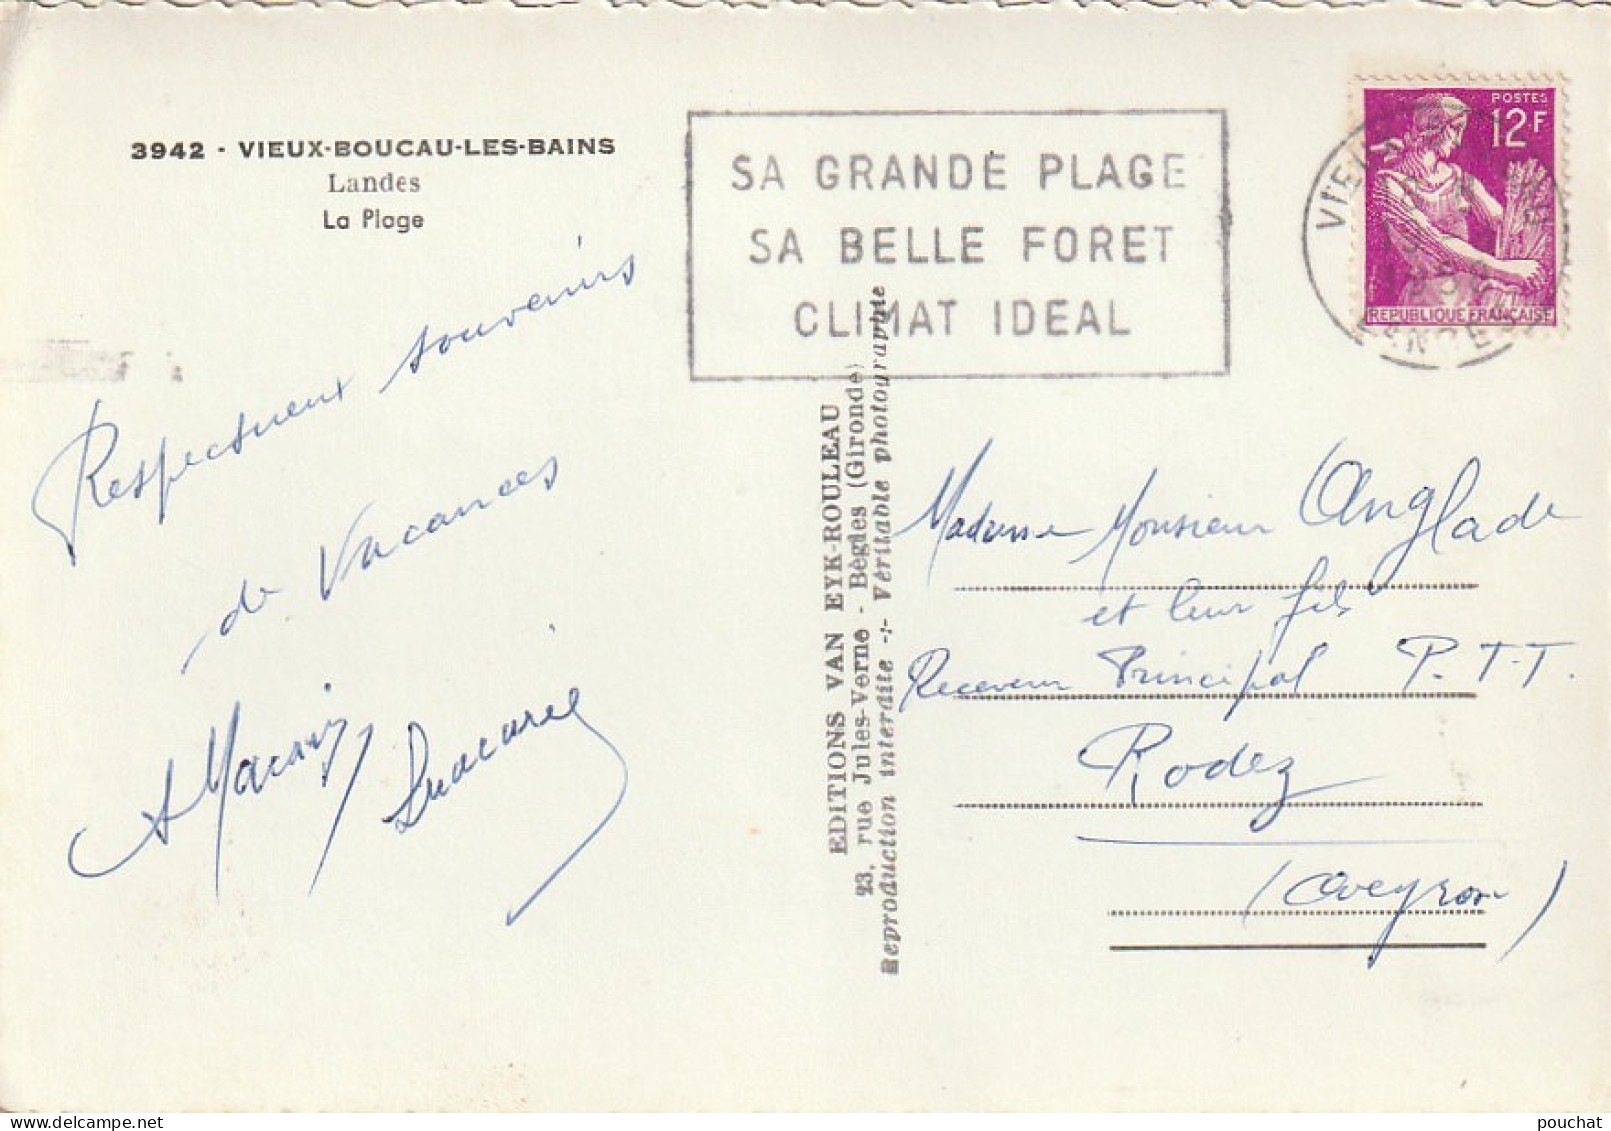 3942 - VIEUX-BOUCAU-LES-BAINS
Landes
La Plage
SA GRANDE PLAGE
SA BELLE FORET
CLIMAT IDEAL
POSTES
12F
REPUBLIQUE FRANÇAISE
Respectueux souvenirs
de Vacances
EDITIONS VAN EYK-ROULEAU
23, rue Jules-Verne - Bègles (Gironde)
Reproduction interdite -:- Véritable photographie
Madame Monsieur Anglade
et leur fils
Receveur Principal P.T.T.
Rodez
(Aveyron)
pouchat